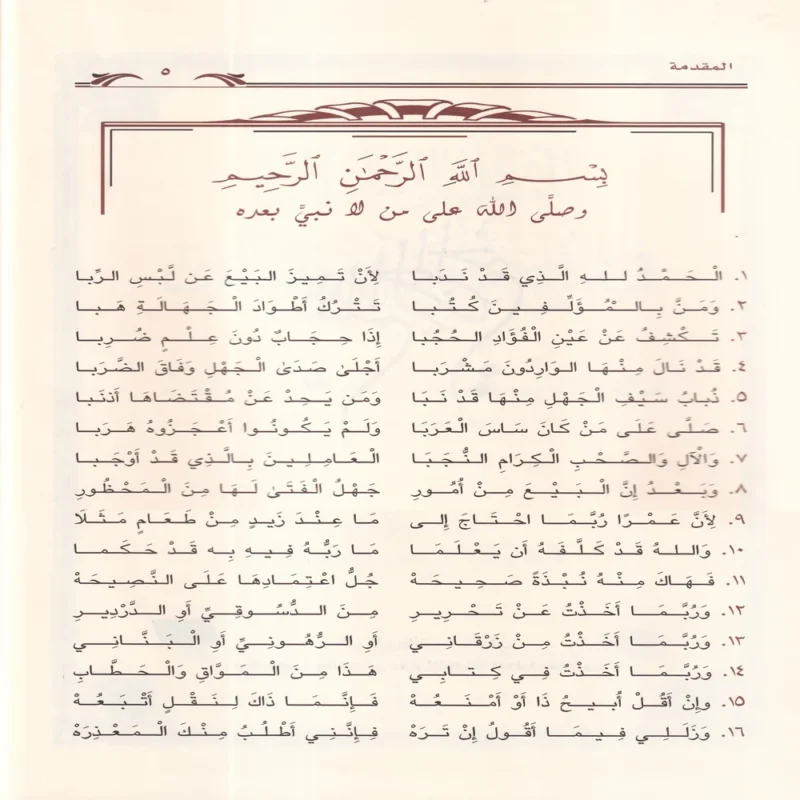 المقدمة
٥
بِسْمِ ٱللَّهِ ٱلرَّحْمَٰنِ ٱلرَّحِيمِ
وصلَّى الله على من لا نبيَّ بعده
١. الْحَمْدُ للهِ الَّذِي قَدْ نَدَبَا لِأَنْ تَمِيزَ البَيْعَ عَن لَّبْسِ الرِّبا
٢. وَمَنَّ بِالْمُؤَلِّفِينَ كُتُبا تَتْرُكُ أَطْوَادَ الْجَهَالَةِ هَبا
٣. تَكْشِفُ عَنْ عَيْنِ الْفُؤَادِ الحُجُبا إِذَا حِجَابٌ دُونَ عِلْمٍ ضُرِبا
٤. قَدْ نَالَ مِنْهَا الوَارِدُونَ مَشْرَبا أَجْلَىٰ صَدَىٰ الْجَهْلِ وَفَاقَ الضَّرَبا
٥. ذُبابُ سَيْفِ الْجَهْلِ مِنْهَا قَدْ نَبَا وَمَن يَحِدْ عَنْ مُقْتَضَاهَا أَذنَبا
٦. صَلَّى عَلَى مَنْ كَانَ سَاسَ الْعَرَبَا وَلَمْ يَكُونُوا أَعْجَزُوهُ هَرَبا
٧. وَالْآلِ وَالصَّحْبِ الْكِرَامِ النُّجَبَا الْعَامِلِينَ بِالَّذِي قَدْ أَوْجَبا
٨. وَبَعْدُ إِنَّ الْبَيْعَ مِنْ أُمُورِ جَهْلُ الْفَتَىٰ لَهَا مِنَ الْمَحْظُورِ
٩. لِأَنَّ عَمْرًا رُبَّمَا احْتَاجَ إِلى مَا عِنْدَ زَيدٍ مِنْ طَعَامٍ مَثَلَا
١٠. وَاللهُ قَدْ كَلَّفَهُ أَن يَعْلَمَا مَا رَبُّهُ فِيهِ بِه قَدْ حَكَما
١١. فَهَاكَ مِنْهُ نُبْذَةً صَحِيحَهْ جُلُّ اعْتِمَادِهَا عَلَى النَّصِيحَهْ
١٢. وَرُبَّمَا أَخَذْتُ عَنْ تَحْرِيرِ مِنَ الدُّسُوقِيِّ أَوِ الدَّرْدِيرِ
١٣. وَرُبَّمَا أَخَذْتُ مِنْ زَرْقَانِي أَوِ الرُّهُونِيِّ أَوِ الْبَنَّانِي
١٤. وَرُبَّمَا أَخَذْتُ فِي كِتابِي هَذَا مِنَ الْمَوَّاقِ وَالْحَطَّابِ
١٥. وإِنْ أَقُلْ أُبيحُ ذَا أَوْ أَمْنَعُهْ فَإِنَّمَا ذَاكَ لِنَقْلٍ أَتْبَعُهْ
١٦. وَزَلَلِي فِيمَا أَقُولُ إِنْ تَرَهْ فِإِنَّنِي أَطْلُبُ مِنْكَ الْمَعْذِرَهْ